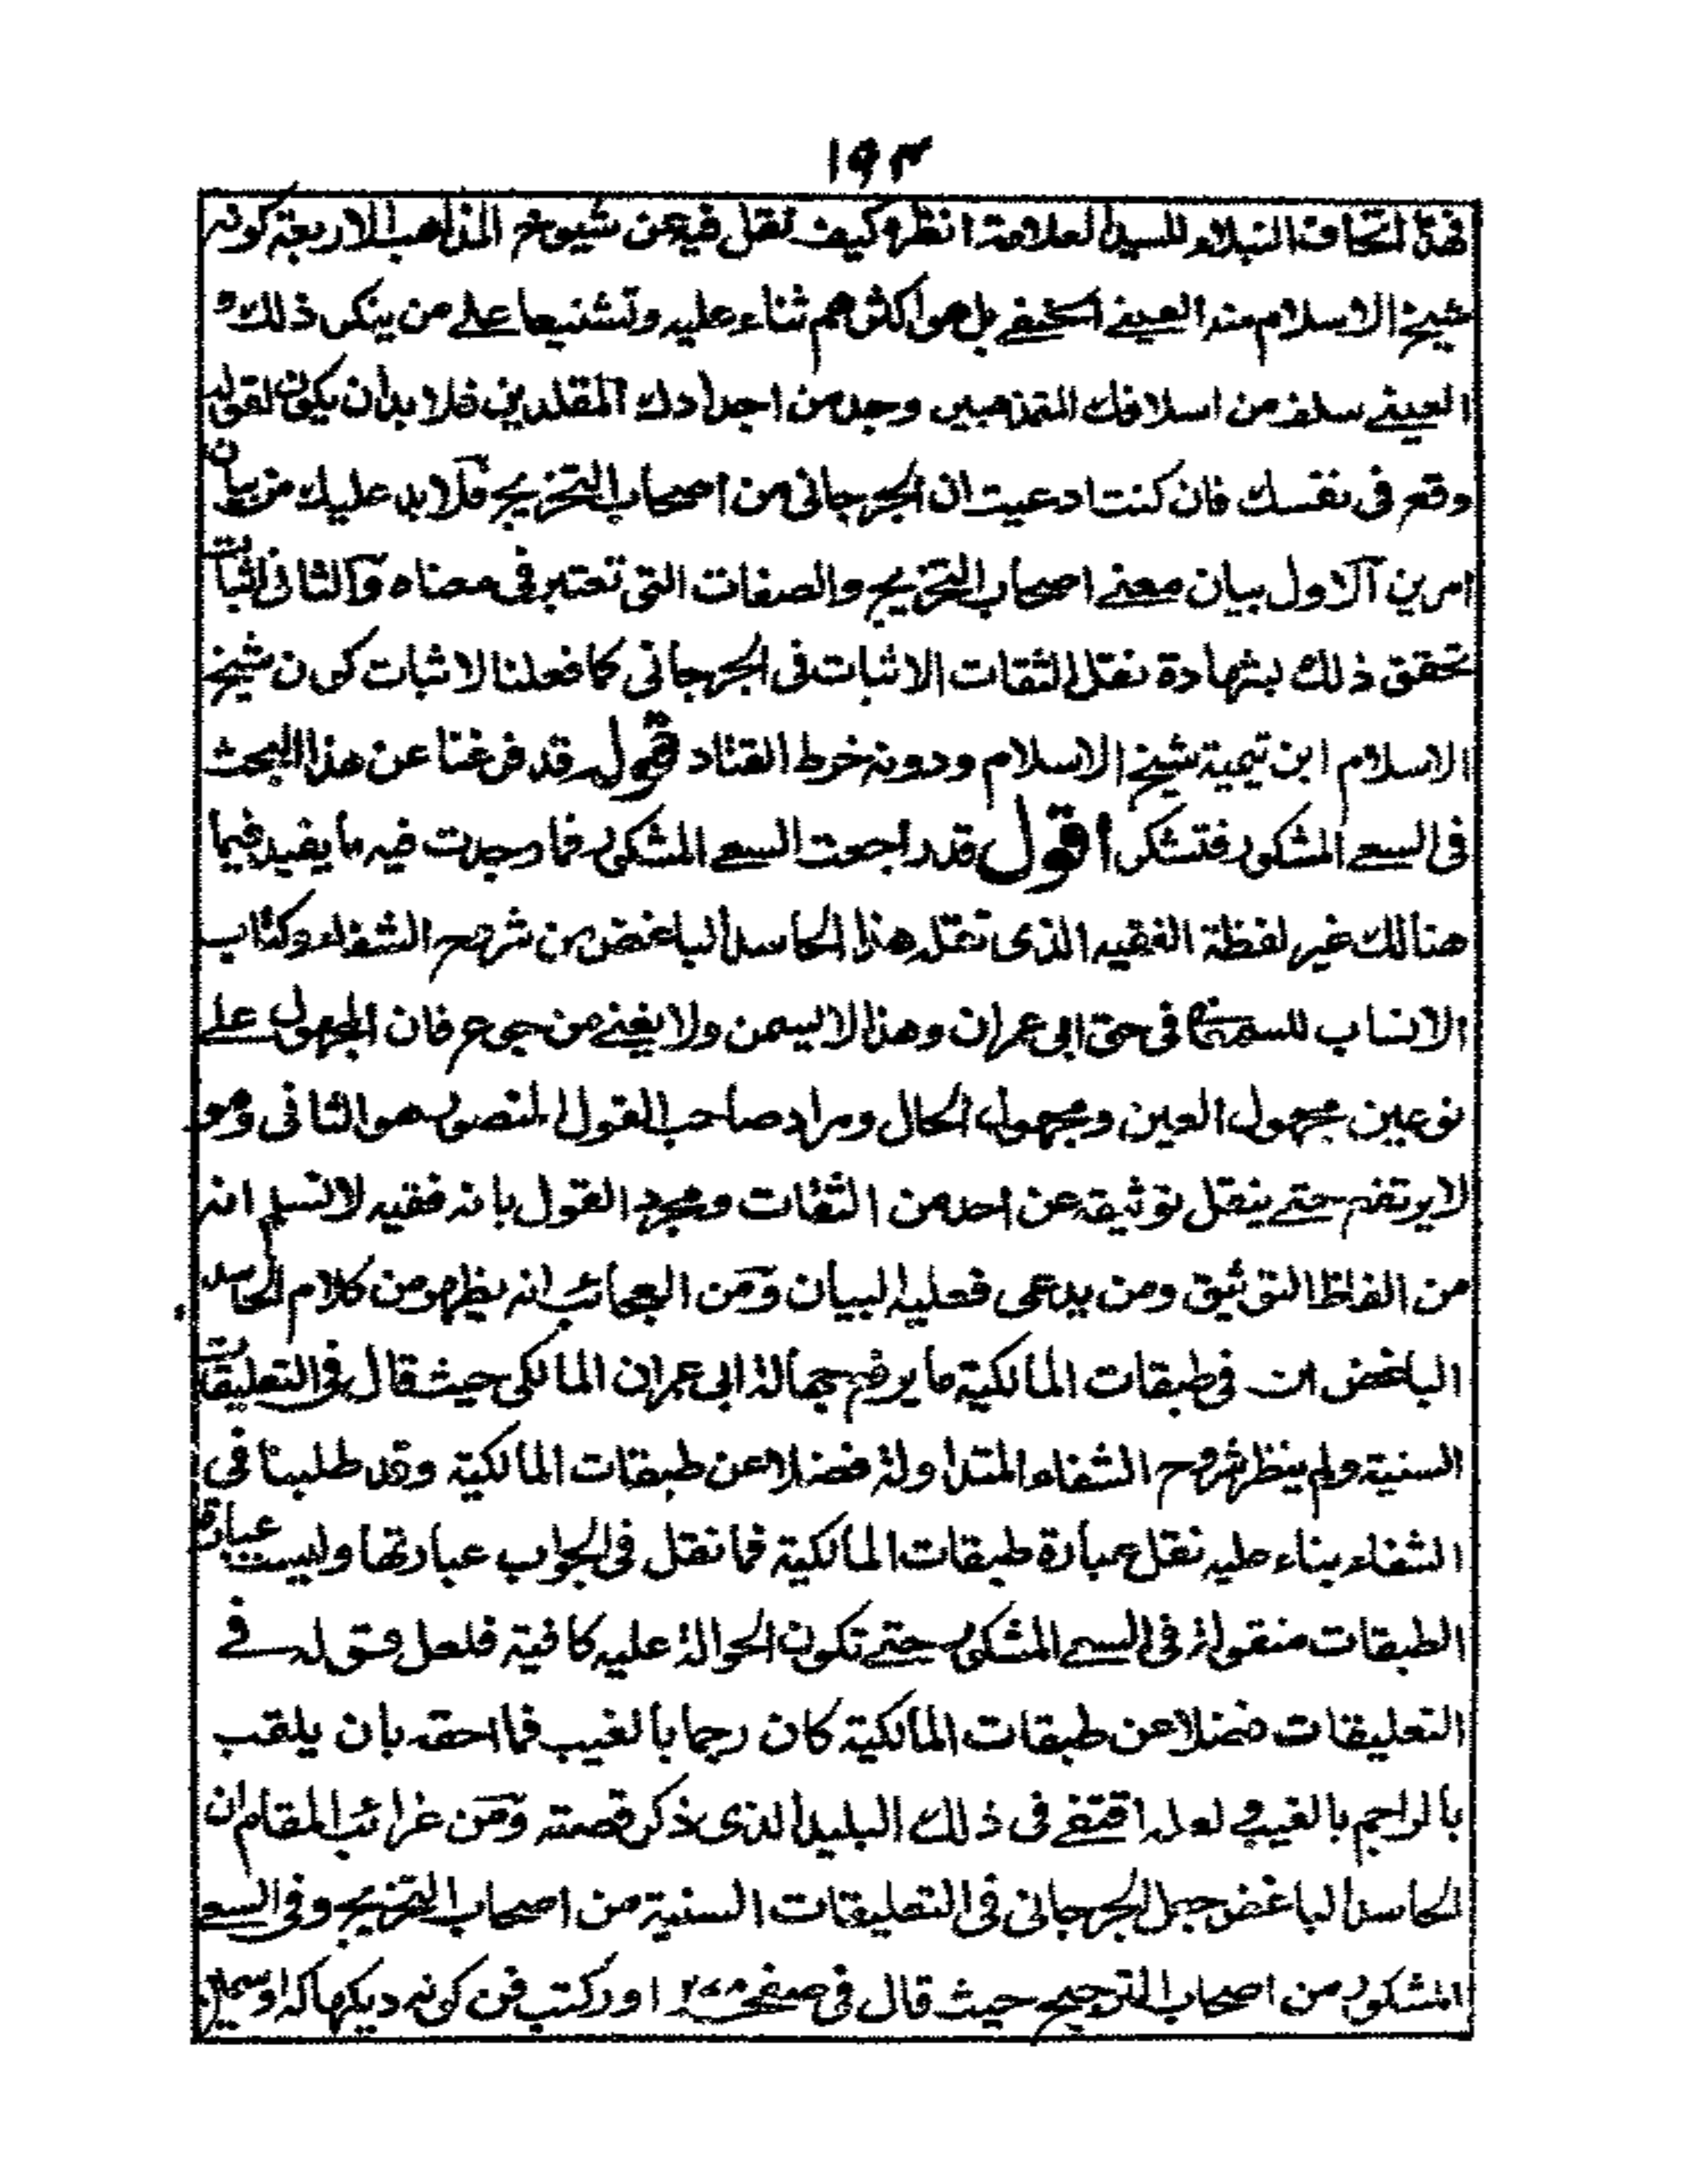 ١٩٣
فهذا اتحاف النبلاء للسيد العلامة انظروا كيف نقل فيه عن شيوخ المذاهب الاربعة كونه
شيخ الاسلام منه العينى الحنفى بل هو اكثرهم ثناء عليه وتشنيعا على من ينكر ذلك و
العينى سلف من اسلافك المتمذهبين وجد من اجدادك المقلدين فلا بد ان يكون لقوله
وقع فى نفسك فان كنت ادعيت ان الجرجانى من اصحاب التخريج فلا بد عليك من بيان
امرين الاول بيان معنى اصحاب التخريج والصفات التى تعتبر فى معناه والثانى اثبات
تحقق ذلك بشهادة نقل الثقات الاثبات فى الجرجانى كما فعلنا لاثبات كون شيخ
الاسلام ابن تيمية شيخ الاسلام ودونه خرط القتاد قوله قد فرغنا عن هذا البحث
فى السعى المشكور فتشكر اقول قد راجعت السعى المشكور فما وجدت فيه ما يفيد فيما
هنالك غير لفظة الفقيه الذى نقله هذا الحاسد الباغض من شروح الشفاء وكتاب
الانساب للسمعانى فى حق ابى عمران وهذا لا يسمن ولا يغنى من جوع فان المجهول على
نوعين مجهول العين ومجهول الحال ومراد صاحب القول المنصور هو الثانى وهو
لا يرتفع حتى ينقل توثيقه عن احد من الثقات ومجرد القول بانه فقيه لا نسلم انه
من الفاظ التوثيق ومن يدعى فعليه البيان ومن العجائب انه يظهر من كلام الحاسد
الباغض ان فى طبقات المالكية ما يرفع جهالة ابى عمران المالكى حيث قال فى التعليقات
السنية ولم ينظر شروح الشفاء المتداولة فضلا عن طبقات المالكية وقد طلبنا فى
الشفاء بناء عليه نقل عبارة طبقات المالكية فما نقل فى الجواب عبارتها وليست عبارة
الطبقات منقولة فى السعى المشكور حتى تكون الحوالة عليه كافية فلعل قوله فى
التعليقات فضلا عن طبقات المالكية كان رجما بالغيب فما احقه بان يلقب
بالراجم بالغيب و لعله اقتفى فى ذلك البليد الذى ذكر قصته ومن غرائب المقام ان
الحاسد الباغض جعل الجرجانى فى التعليقات السنية من اصحاب التخريج وفى السعى
المشكور من اصحاب الترجيح حيث قال فى صفحه اور كتب فن كو نه ديكها كه اوسمين